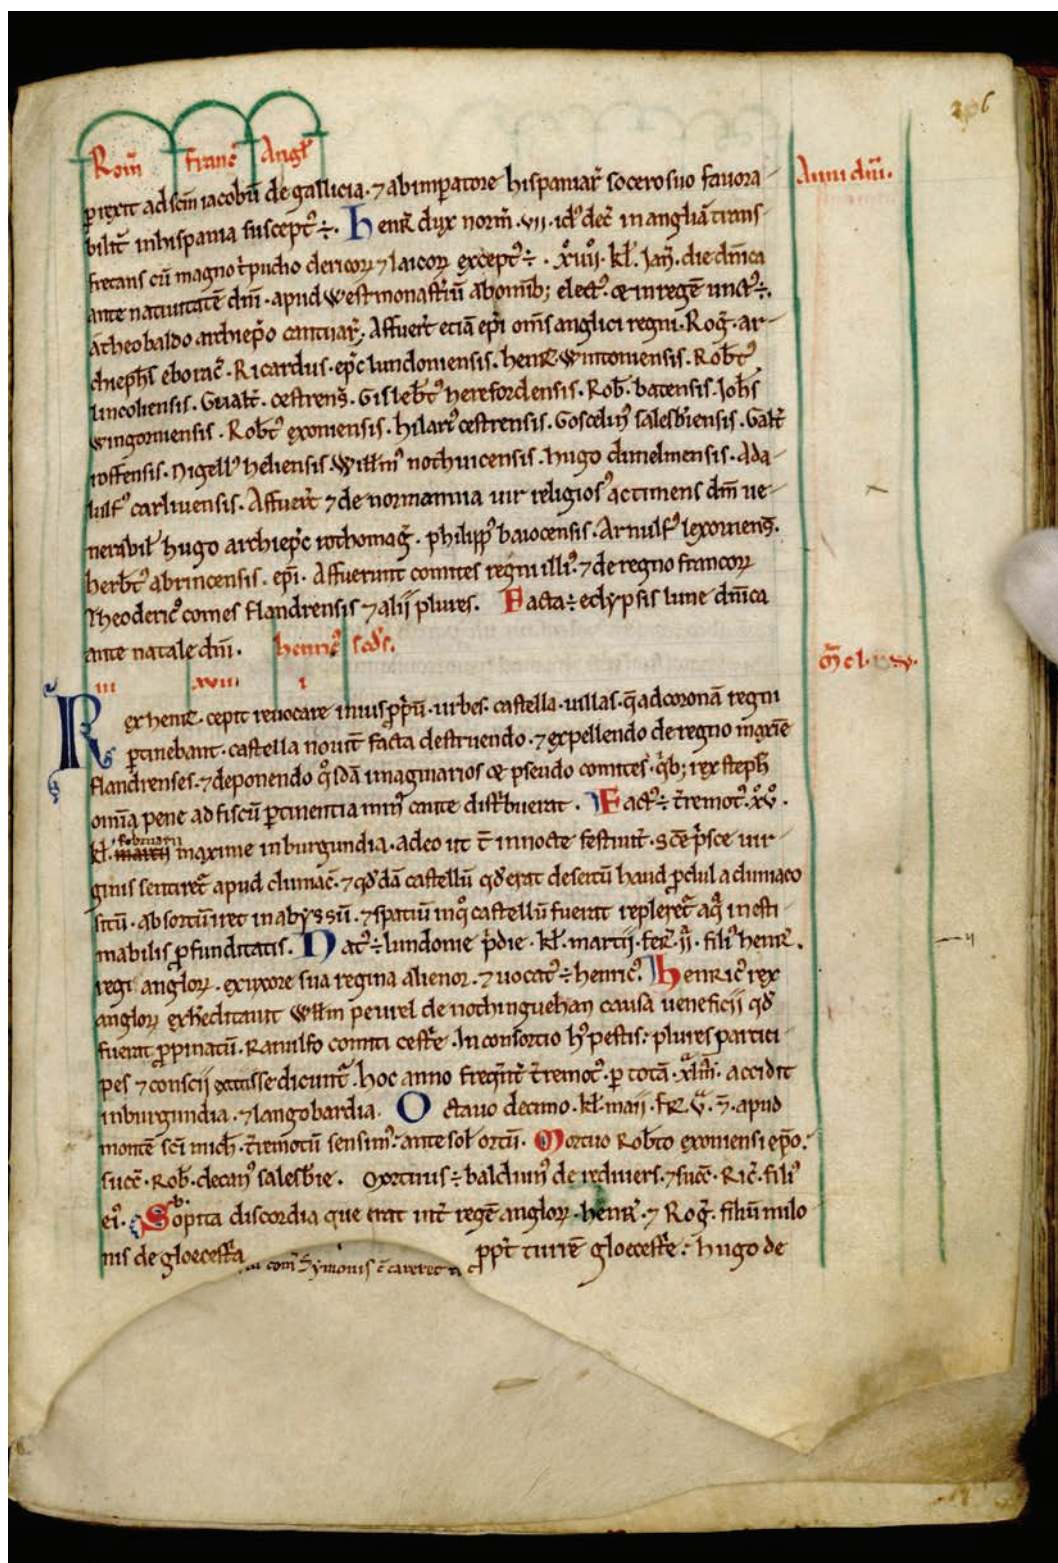 206
Rom̄ franc̄ Angl̄
Anni dn̄i.
prexit ad sc̄m iacobū de gallicia · ⁊ ab imperatore hispaniar̄ socero suo fauora
bilit̄ in hispania suscept᷒ ÷. Henr̄ dux norm̄ · vii · id᷒ dec̄ in angliā trans
fretans cū magno t̄pudio clericoꝝ ⁊ laicoꝝ except᷒ ÷ · xiiii · kl̄ · Jan̄ · die dn̄ica
ante natiuitatē dn̄i · apud westmonast̄iū ab omīb; elect᷒ · ⁊ in regē unct᷒ ÷.
a theobaldo archiep̄o cantuar̄; Affuer̄t eciā ep̄i om̄s anglici regni · Roḡ · ar
chiep̄s eborac̄ · Ricardus · ep̄c lundoniensis · henr̄ · wintoniensis · Rob̄t᷒
lincoliensis · Gualt̄ · cestrens̄ · Gisleb̄t᷒ herefordensis · Rob̄ · batensis · Joh̄s
wingorniensis · Rob̄t᷒ exoniensis · hilari᷒ cestrensis · Goscelin᷒ salesb̄iensis · Galt̄
roffensis · Nigell᷒ heliensis · Will̄m᷒ nothuicensis · hugo dunelmensis · Ada
lulf᷒ carliuensis · Affuer̄t ⁊ de normannia uir religios᷒ ac timens dm̄ ue
nerabil̄ hugo archiep̄c rothomaḡ · philipp᷒ baiocensis · Arnulf᷒ lexouiens̄ ·
herb̄t᷒ abrincensis · ep̄i · Affuerunt comites regni illi᷒ · ⁊ de regno francoꝝ
Theoderic᷒ comes flandrensis ⁊ alij plures. Facta ÷ eclypsis lune dn̄ica
ante natale dn̄i · henric᷒ sc̄ds.
iii xviii i
Rex henr̄ · cepit reuocare in ius p̄priū · urbes · castella · uillas · q̄ ad coronā regni
ptinebant · castella nouit̄ facta destruendo · ⁊ expellendo de regno maxīe
flandrenses · ⁊ deponendo q᷒sdā imaginarios ⁊ pseudo comites · q̄b; rex steph̄
omīa pene ad fiscū ptinentia min᷒ caute dist̄buerat. Fact᷒ ÷ t̄remot᷒ · xv ·
kl̄ · martij februarij maxime in burgundia · adeo ut t̄ in nocte festiuit̄ · sc̄e p̄sce uir
ginis sentiret᷒ apud cluniac̄ · ⁊ q̄ddā castellū q̄d erat desertū haud p̄cul a cluniaco
sitū · absortū iret in abyssū · ⁊ spatiū in q᷒ castellū fuerat repleret᷒ aq̄ inesti
mabilis p̄funditatis. Nat᷒ ÷ lundonie p̄die · kl̄ · martij · fer̄ · ii · fili᷒ henr̄ ·
regi angloꝝ · ex uxore sua regina alienor · ⁊ uocat᷒ ÷ henric᷒. Henric᷒ rex
angloꝝ exh̄editauit Will̄m peurel de nothinguehan causa ueneficij q̄d
fuerat p̄pinatū · Ranulfo comiti cest̄e · In consortio h᷒ pestis: plures partici
pes ⁊ conscij extitisse dicunt᷒. hoc anno freq̄nt̄ t̄remot᷒ · p totā · xl̄mā · accidit
in burgundia · ⁊ langobardia. Octauo decimo · kl̄ · maij · fer̄ · v · ⁊̄ · apud
montē sc̄i mich̄ · t̄remotū sensim᷒: ante sol̄ ortū. Mortuo Rob̄to exoniensi ep̄o:
succ̄ · Rob̄ · decan᷒ salesb̄ie. Mortuus ÷ balduin᷒ de reduiers · ⁊ succ̄ · Ric̄ · fili᷒
ei᷒. Sopita discordia que erat int̄ regē angloꝝ · henr̄ · ⁊ Roḡ · filiū milo
nis de gloecest̄a ppt̄ turrē gloecest̄e: hugo de